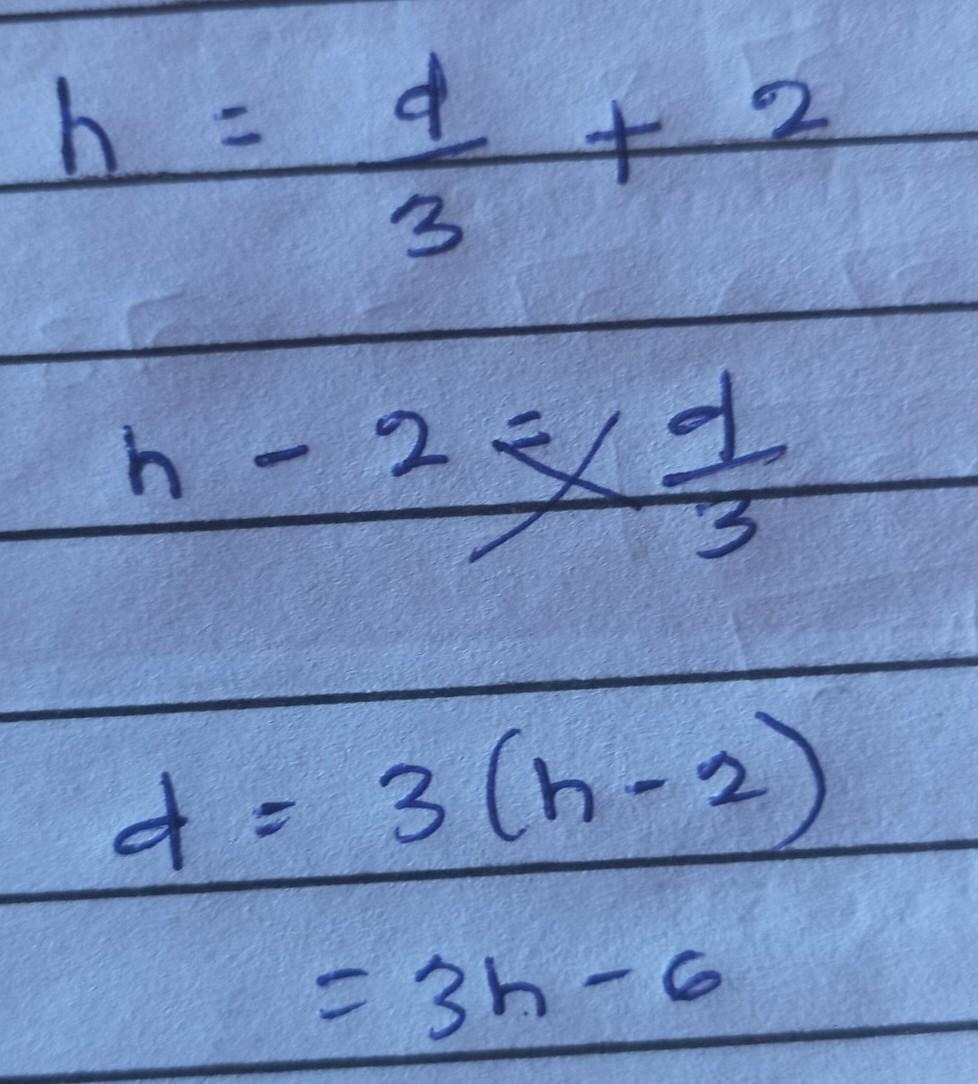 h = d/3 + 2
h - 2 = d/3
d = 3(h - 2)
= 3h - 6